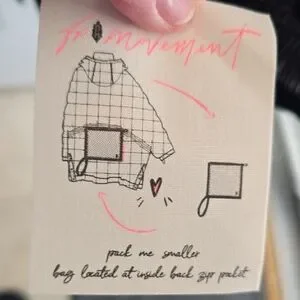 fp movement
pack me smaller
bag located at inside back zip pocket